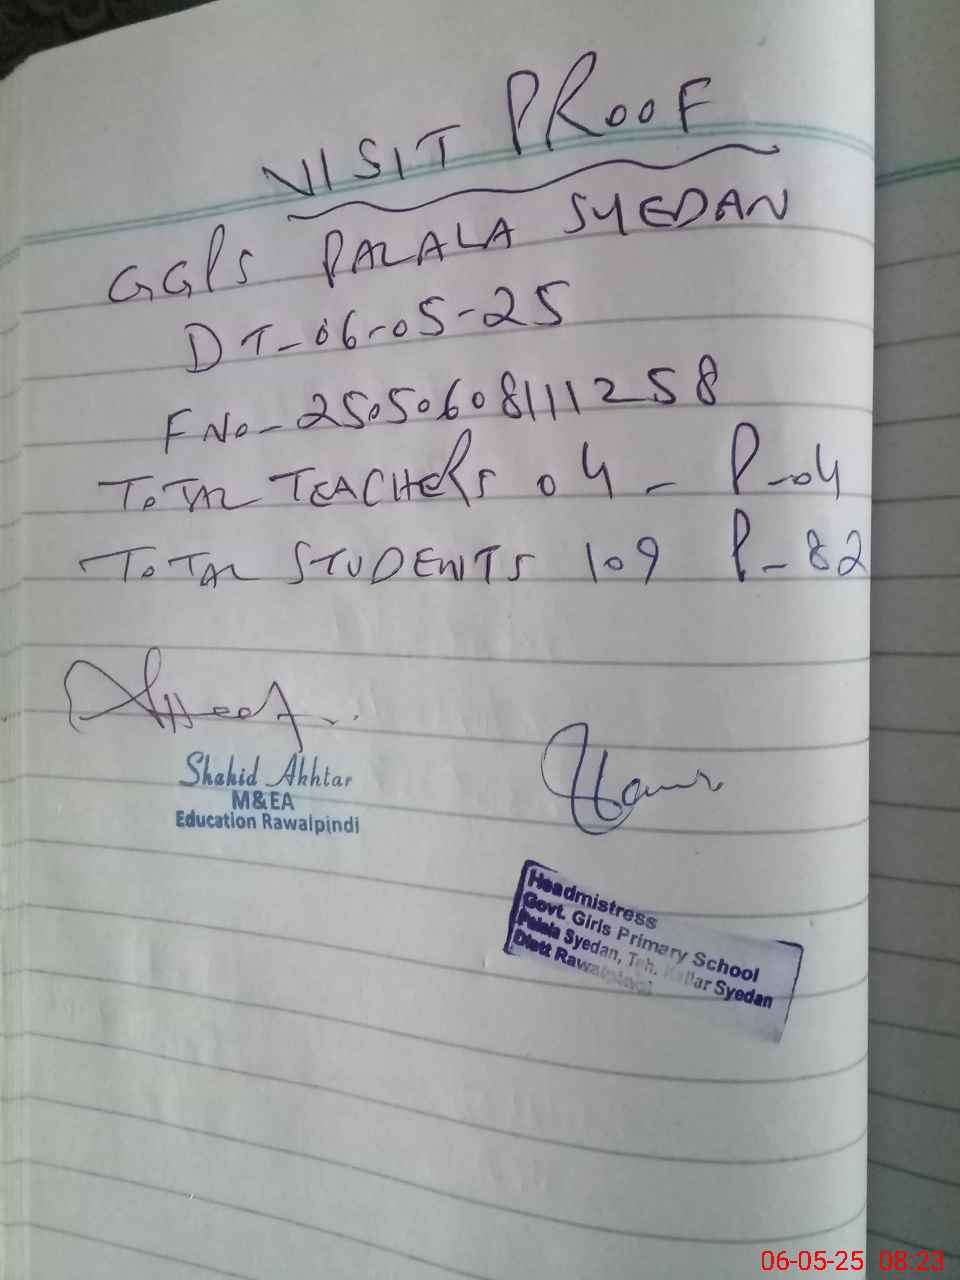 VISIT PROOF
GGPS PALALA SYEDAN
DT-06-05-25
F No- 25050608111258
TOTAL TEACHERS 04 - P-04
TOTAL STUDENTS 109 P-82
Shahid Akhtar
M&EA
Education Rawalpindi
Headmistress
Govt. Girls Primary School
Palala Syedan, Teh. Kallar Syedan
Distt Rawalpindi
06-05-25 08:23